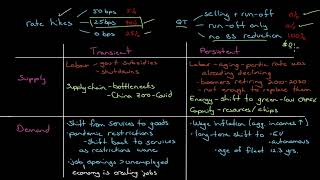 rate hikes
50 bps 5%
25 bps 90%
0 bps 5%
QT
selling + run-off 0%
run-off only 0%
no BS reduction 100%
Transient
Persistent
Supply
Labour - govt subsidies
- shutdowns
Supply chain - bottlenecks
- China zero-Covid
Labour - aging - partic rate was
already declining
- boomers retiring 2020-2030
- not enough to replace them
Energy - shift to green - low CAPEX
Capacity - resources/ships
Demand
• Shift from services to goods
• pandemic restrictions
- Shift back to services
as restrictions wane
• job openings > unemployed
economy is creating jobs
• Wage inflation (agg. incomes ↑)
• long-term shift to - EV
- autonomous
- age of fleet 12.3 yrs.